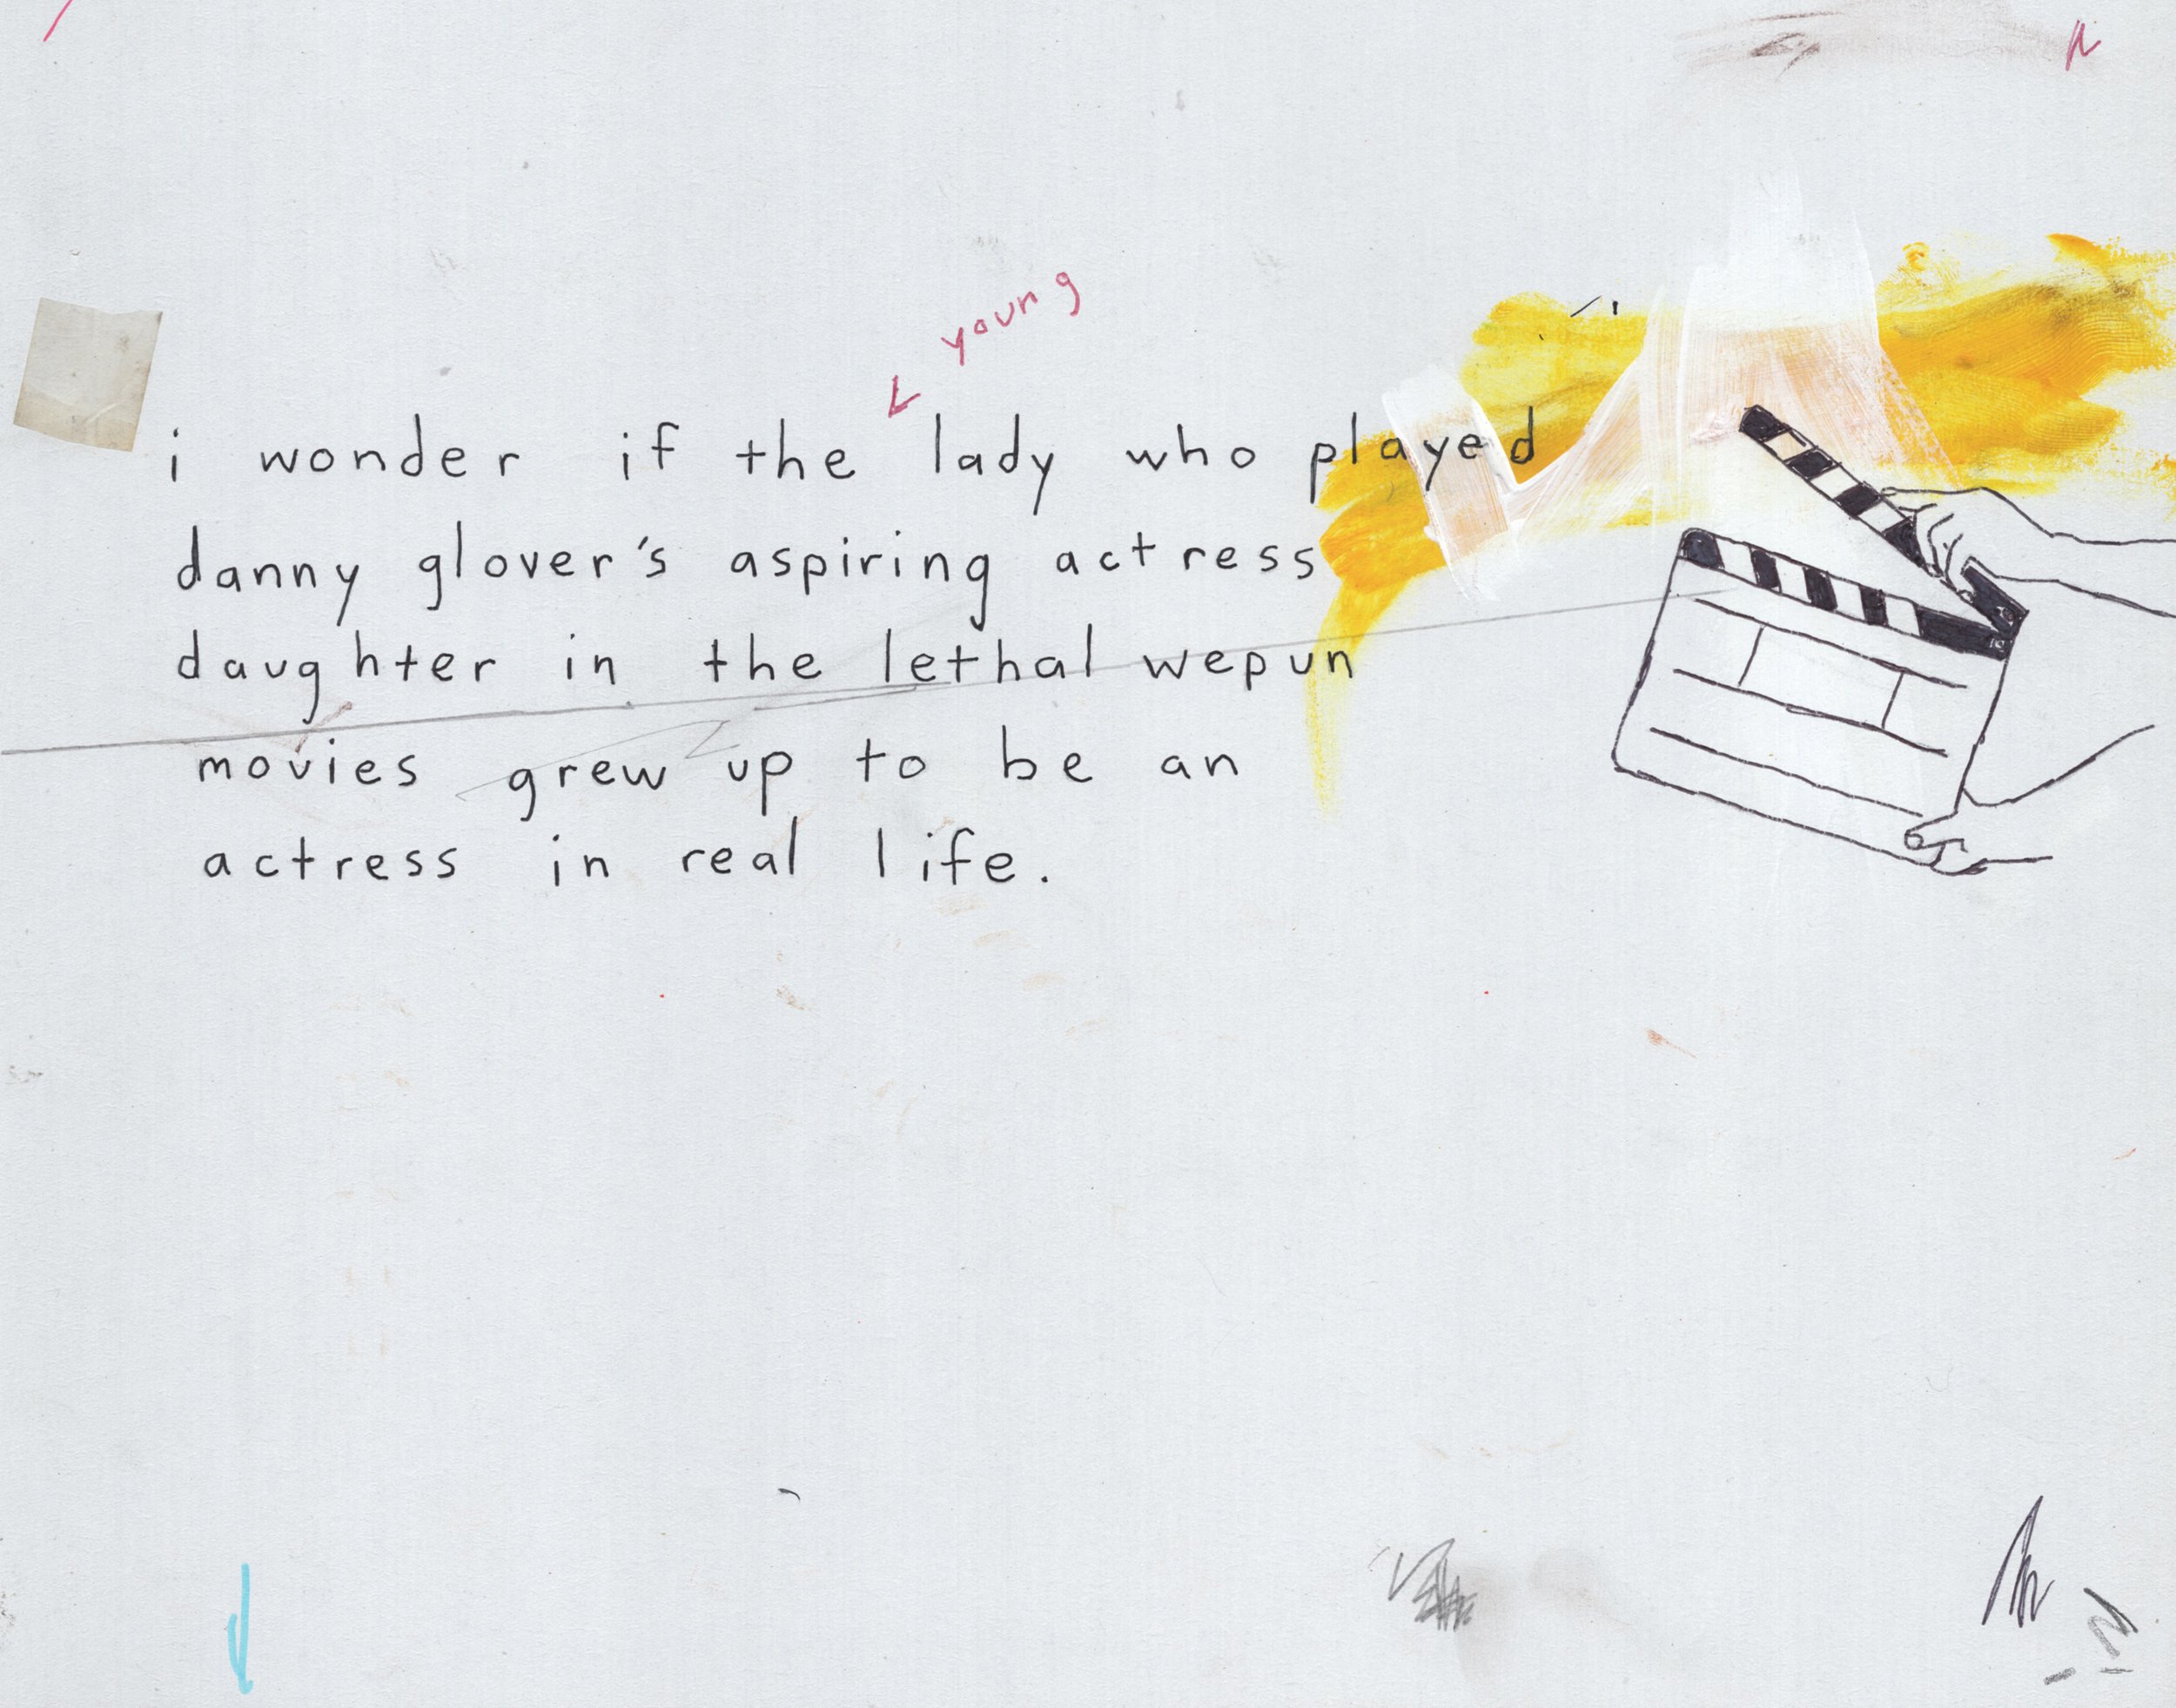 young
i wonder if the lady who played
danny glover's aspiring actress
daughter in the lethal wepun
movies grew up to be an
actress in real life.